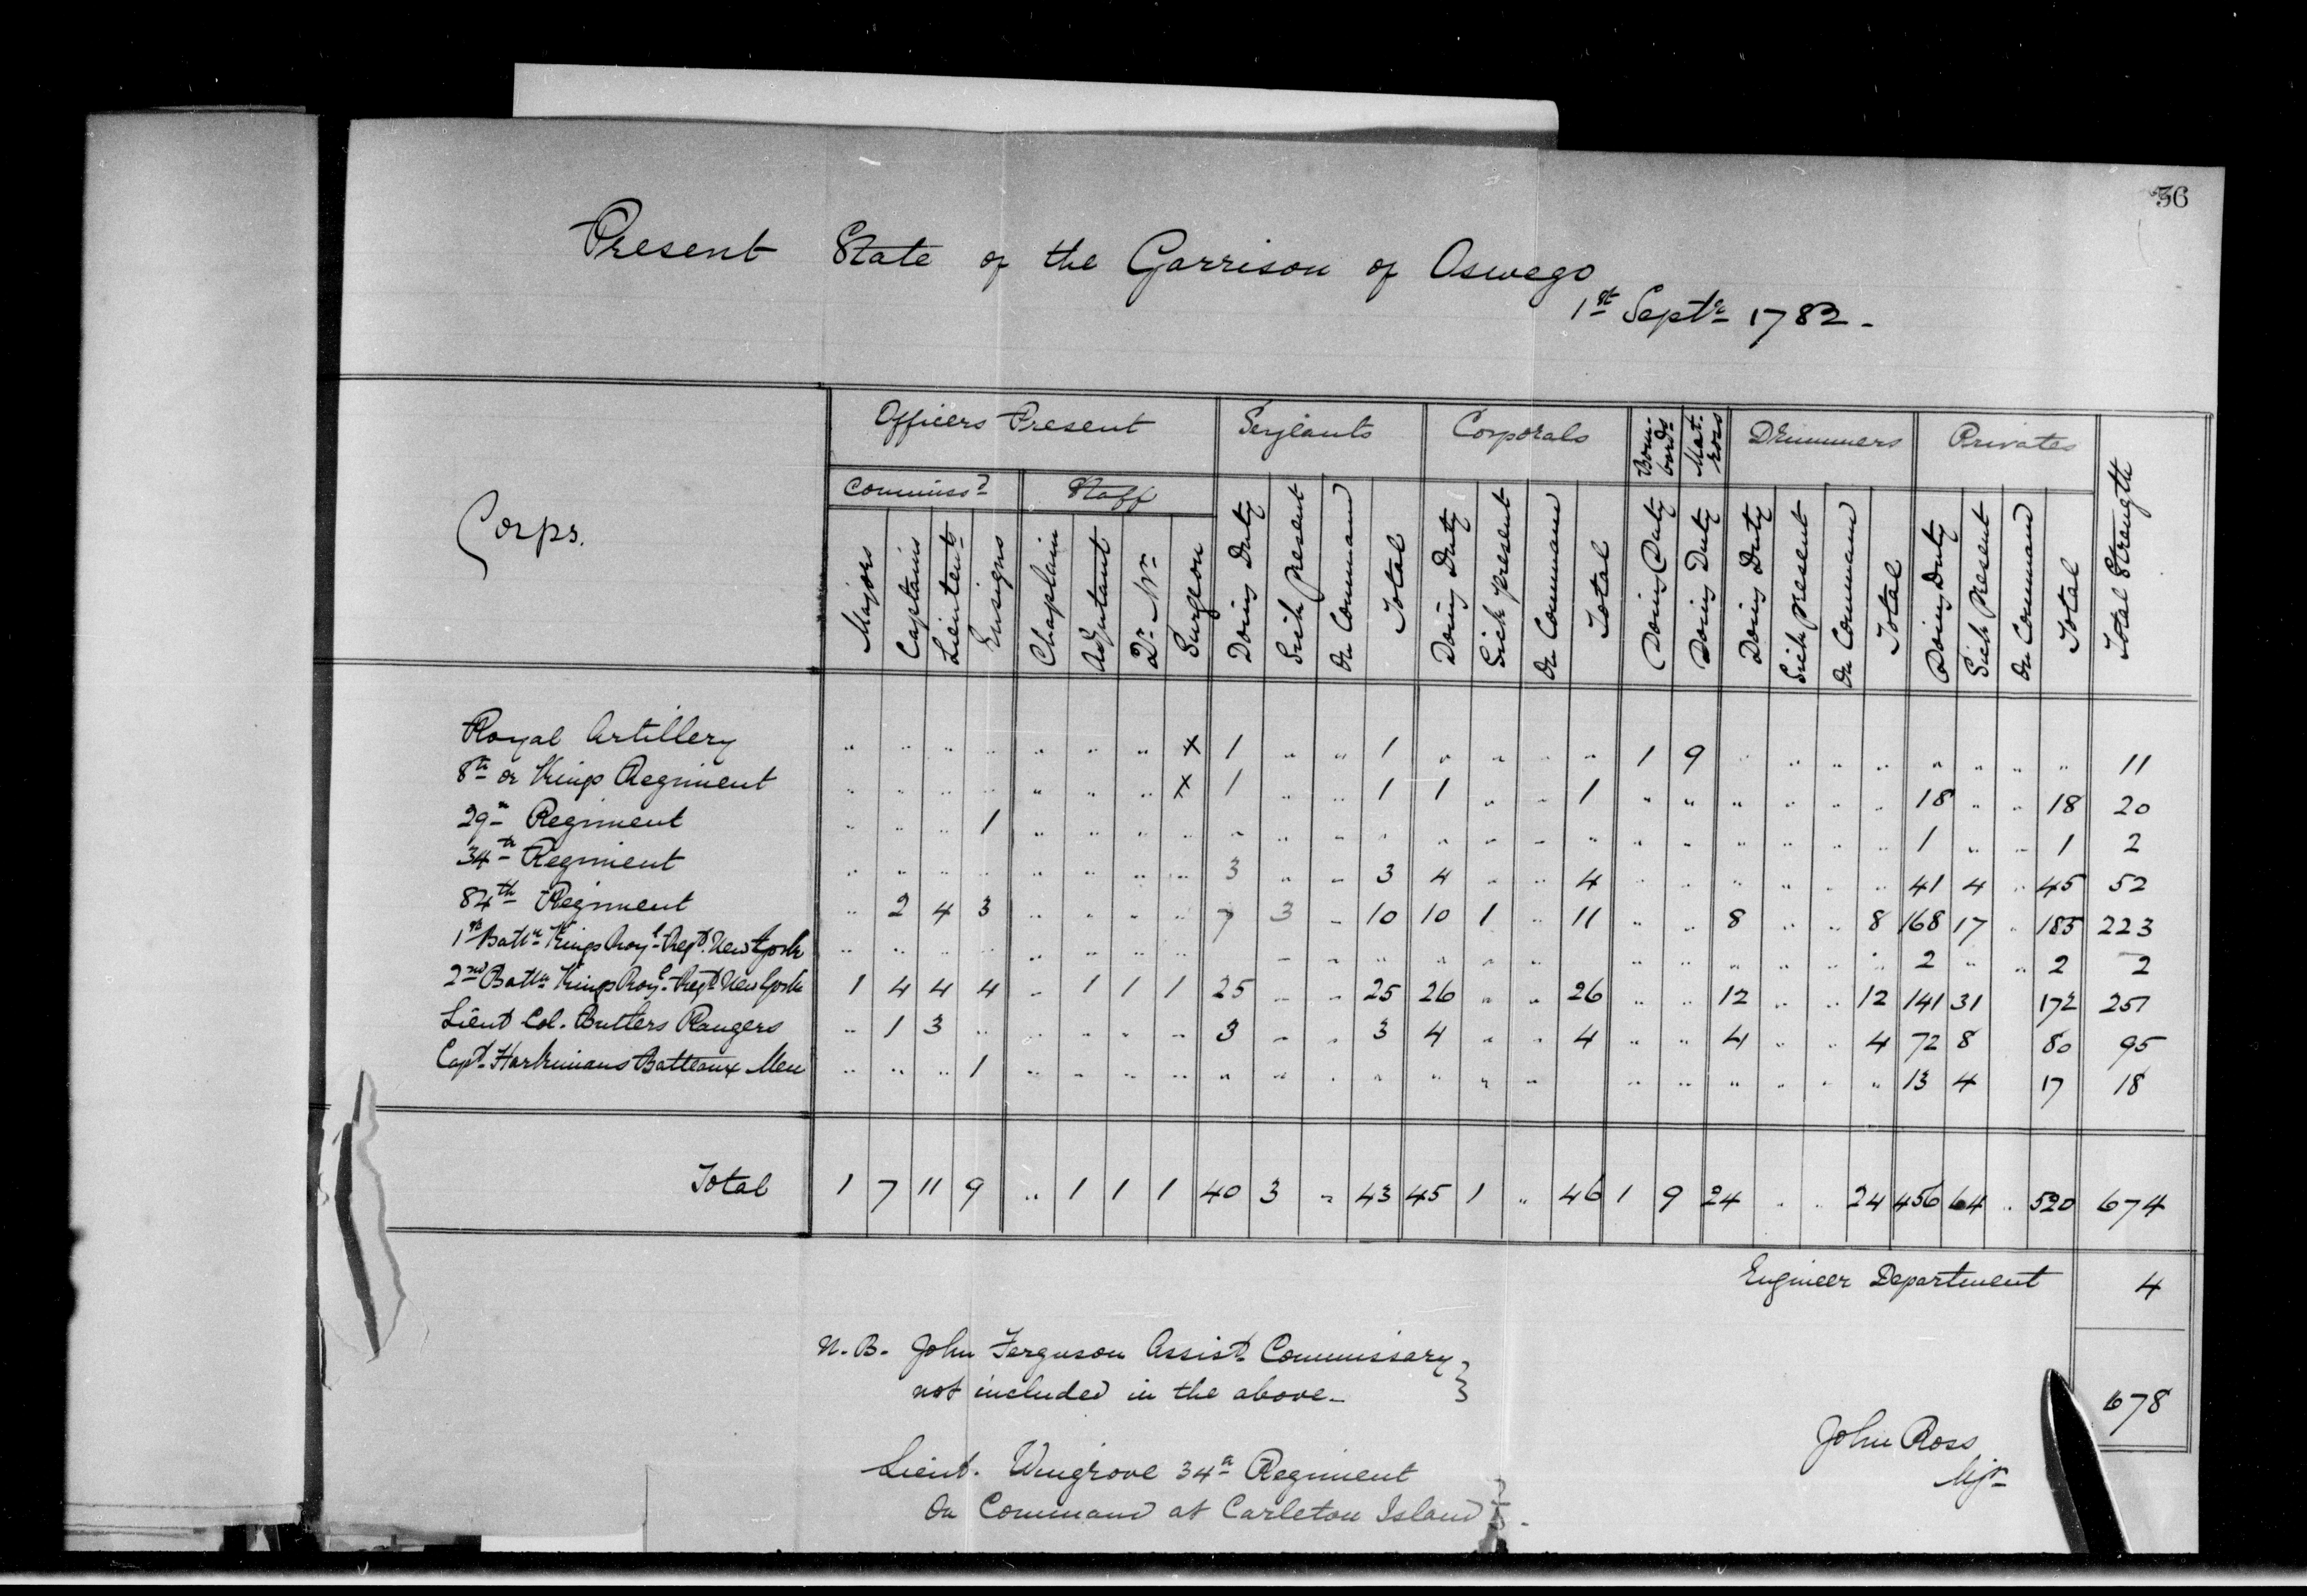 36
Present State of the Garrison of Oswego
1st Septr 1782.
Corps.
Officers Present
Serjeants
Corporals
Bom-bards
Mat-rors
Drummers
Privates
Total Strength
Commissd
Staff
Majors
Captains
Lieutents
Ensigns
Chaplain
Adjutant
Qr Mr
Surgeon
Doing Duty
Sick Present
On Command
Total
Doing Duty
Sick present
On Command
Total
Doing Duty
Doing Duty
Doing Duty
Sick Present
On Command
Total
Doing Duty
Sick Present
On Command
Total
Royal Artillery " " " " " " " x 1 " " 1 " " " " 1 9 " " " " " " " " 11
8th or Kings Regiment " " " " " " " x 1 " " 1 1 " " 1 " " " " " " 18 " " 18 20
29th Regiment " " " 1 " " " " " " " " " " " " " " " " " " 1 " " 1 2
34th Regiment " " " " " " " " 3 " " 3 4 " " 4 " " " " " " 41 4 " 45 52
84th Regiment " 2 4 3 " " " " 7 3 " 10 10 1 " 11 " " 8 " " 8 168 17 " 185 223
1st Battn Kings Royl Regt New York " " " " " " " " " " " " " " " " " " " " " 2 " " 2 2
2nd Battn Kings Royl Regt New York 1 4 4 4 " 1 1 1 25 " " 25 26 " " 26 " " 12 " " 12 141 31 172 251
Lieut Col. Butlers Rangers " 1 3 " " " " " 3 " " 3 4 " " 4 " " 4 " " 4 72 8 80 95
Capt. Harkimans Batteaux Men " " " 1 " " " " " " " " " " " " " " " " " 13 4 17 18
Total 1 7 11 9 " 1 1 1 40 3 " 43 45 1 " 46 1 9 24 " " 24 456 64 " 520 674
Engineer Department 4
N.B. John Ferguson Assist Commissary
not included in the above
678
John Ross
Mjr
Lieut. Wingrove 34th Regiment
On Command at Carleton Island